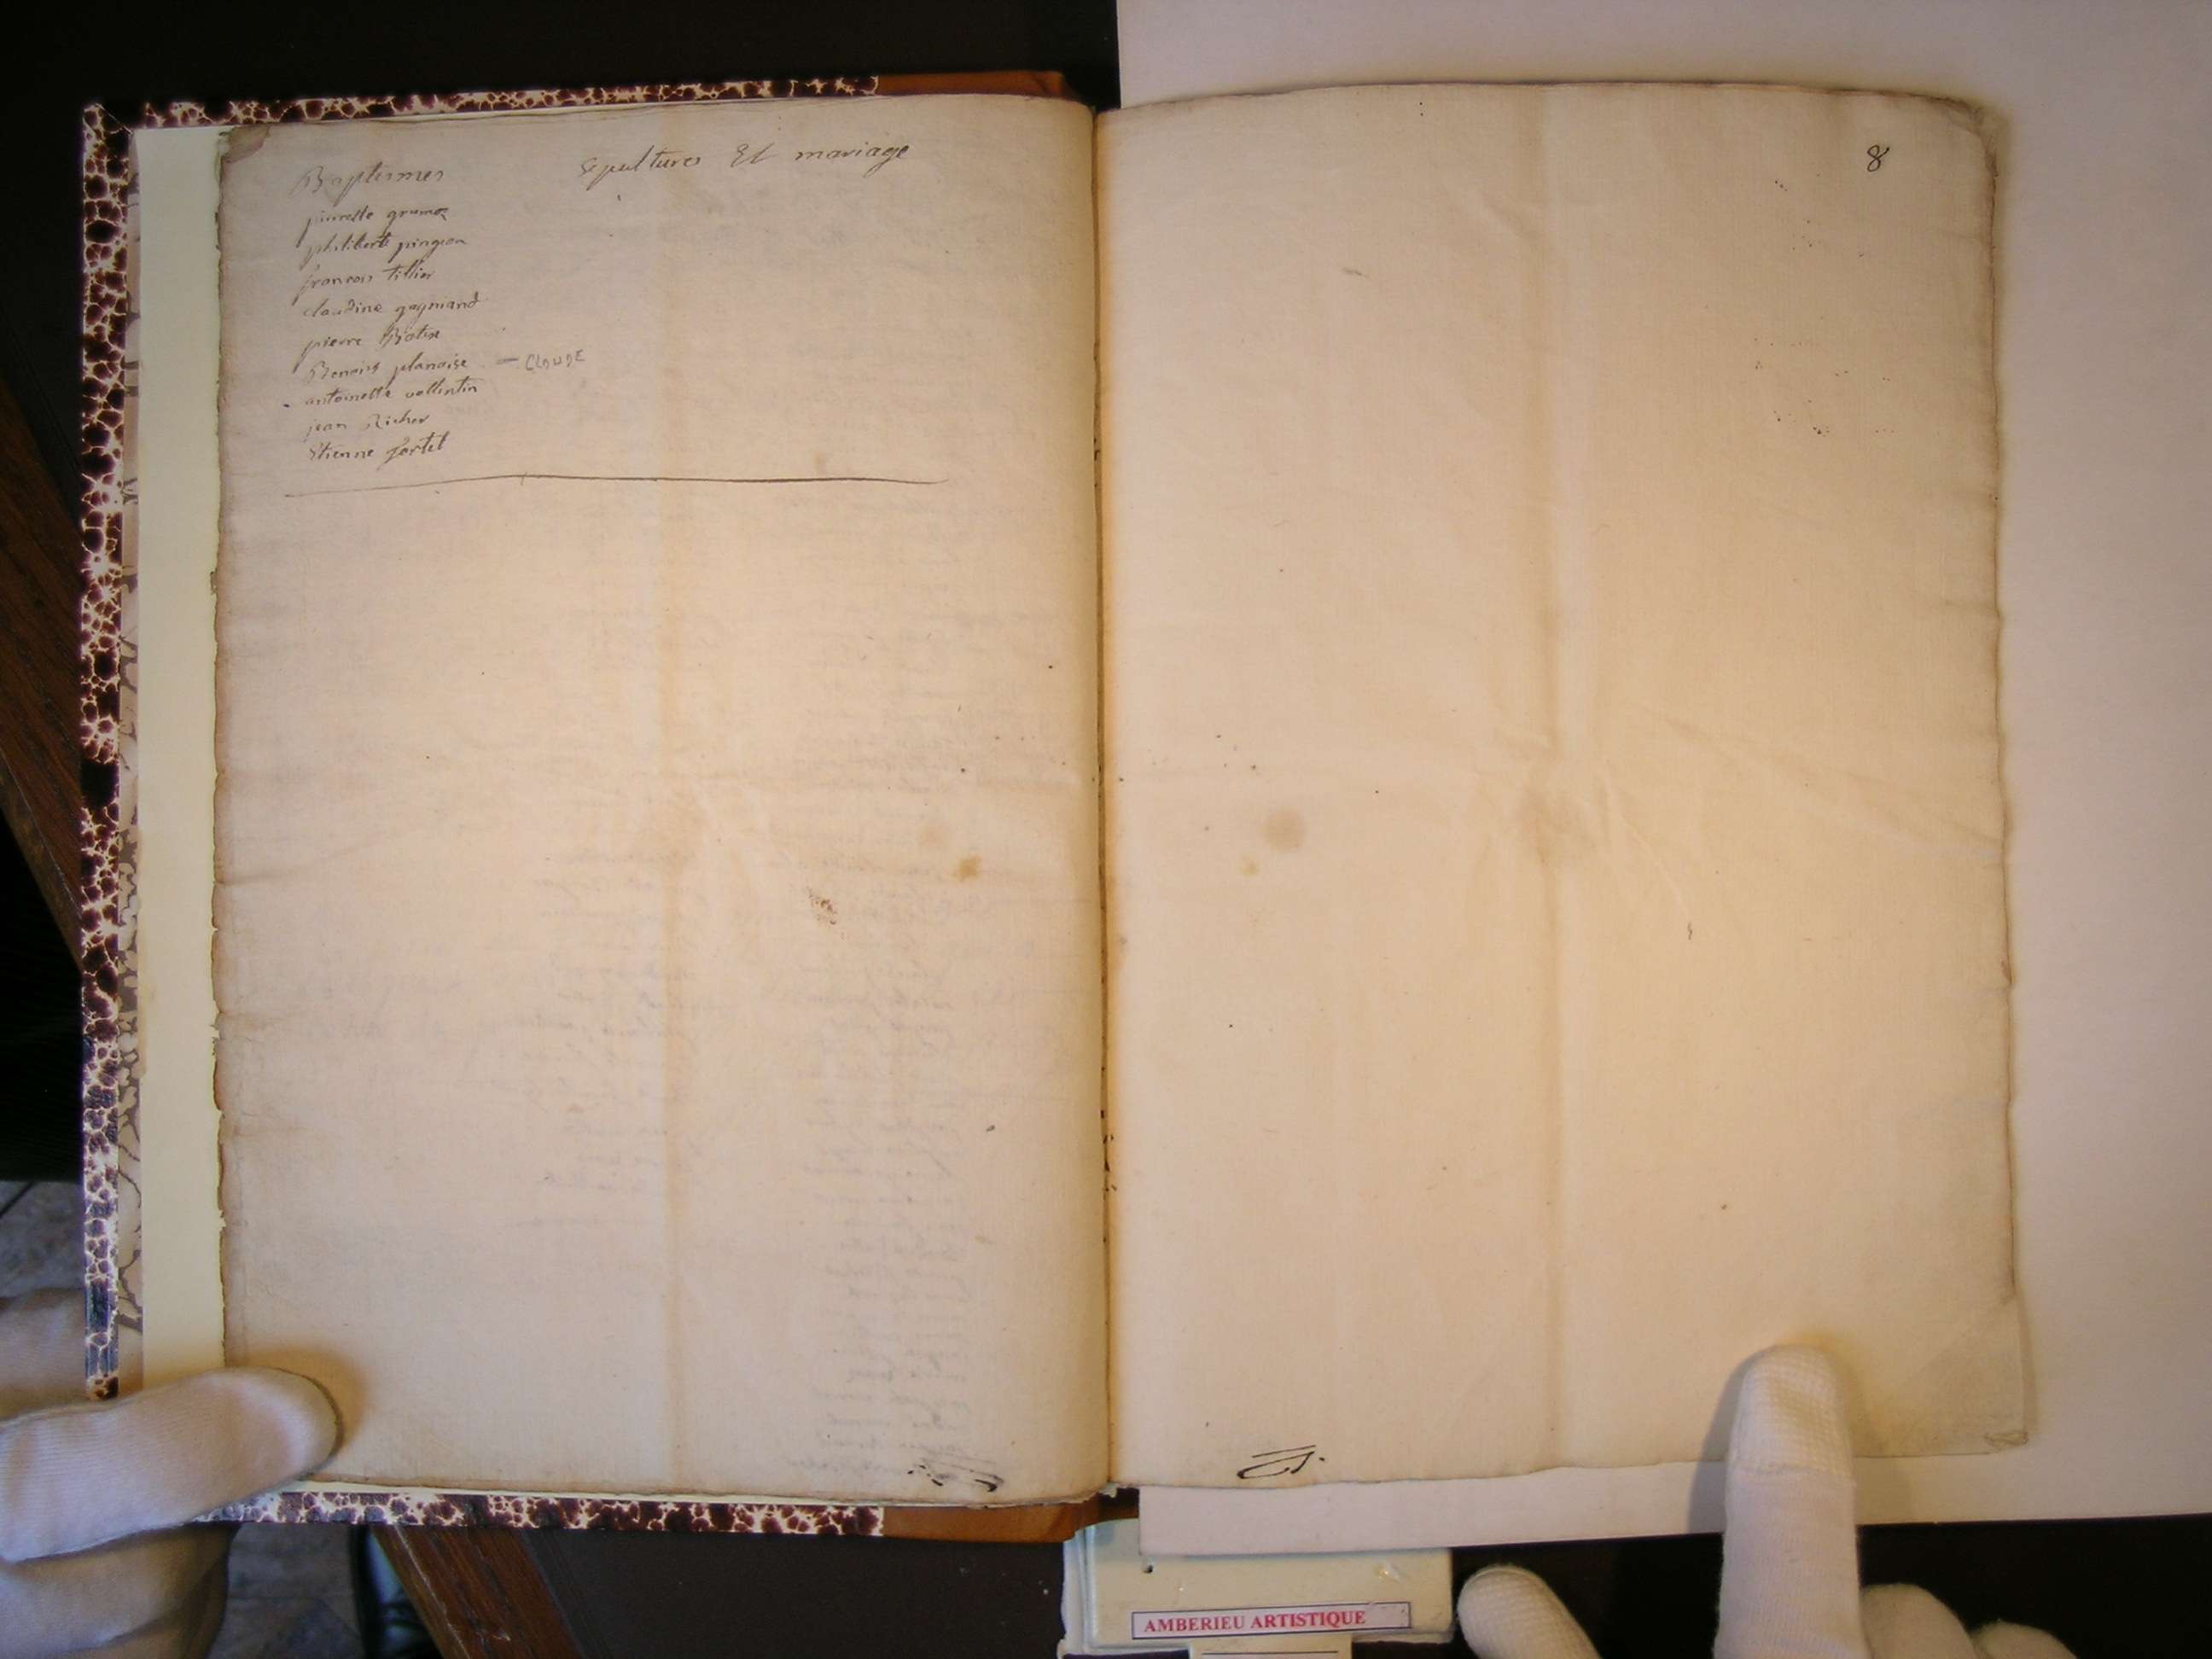 Baptismes
sepultures Et mariage
pierrette grumoz
philiberte pingeon
francois tillier
claudine gagniand
pierre
Benoist planaise — CLAUDE
antoinette vallintin
jean Richer
Etienne fortet
8
AMBERIEU ARTISTIQUE